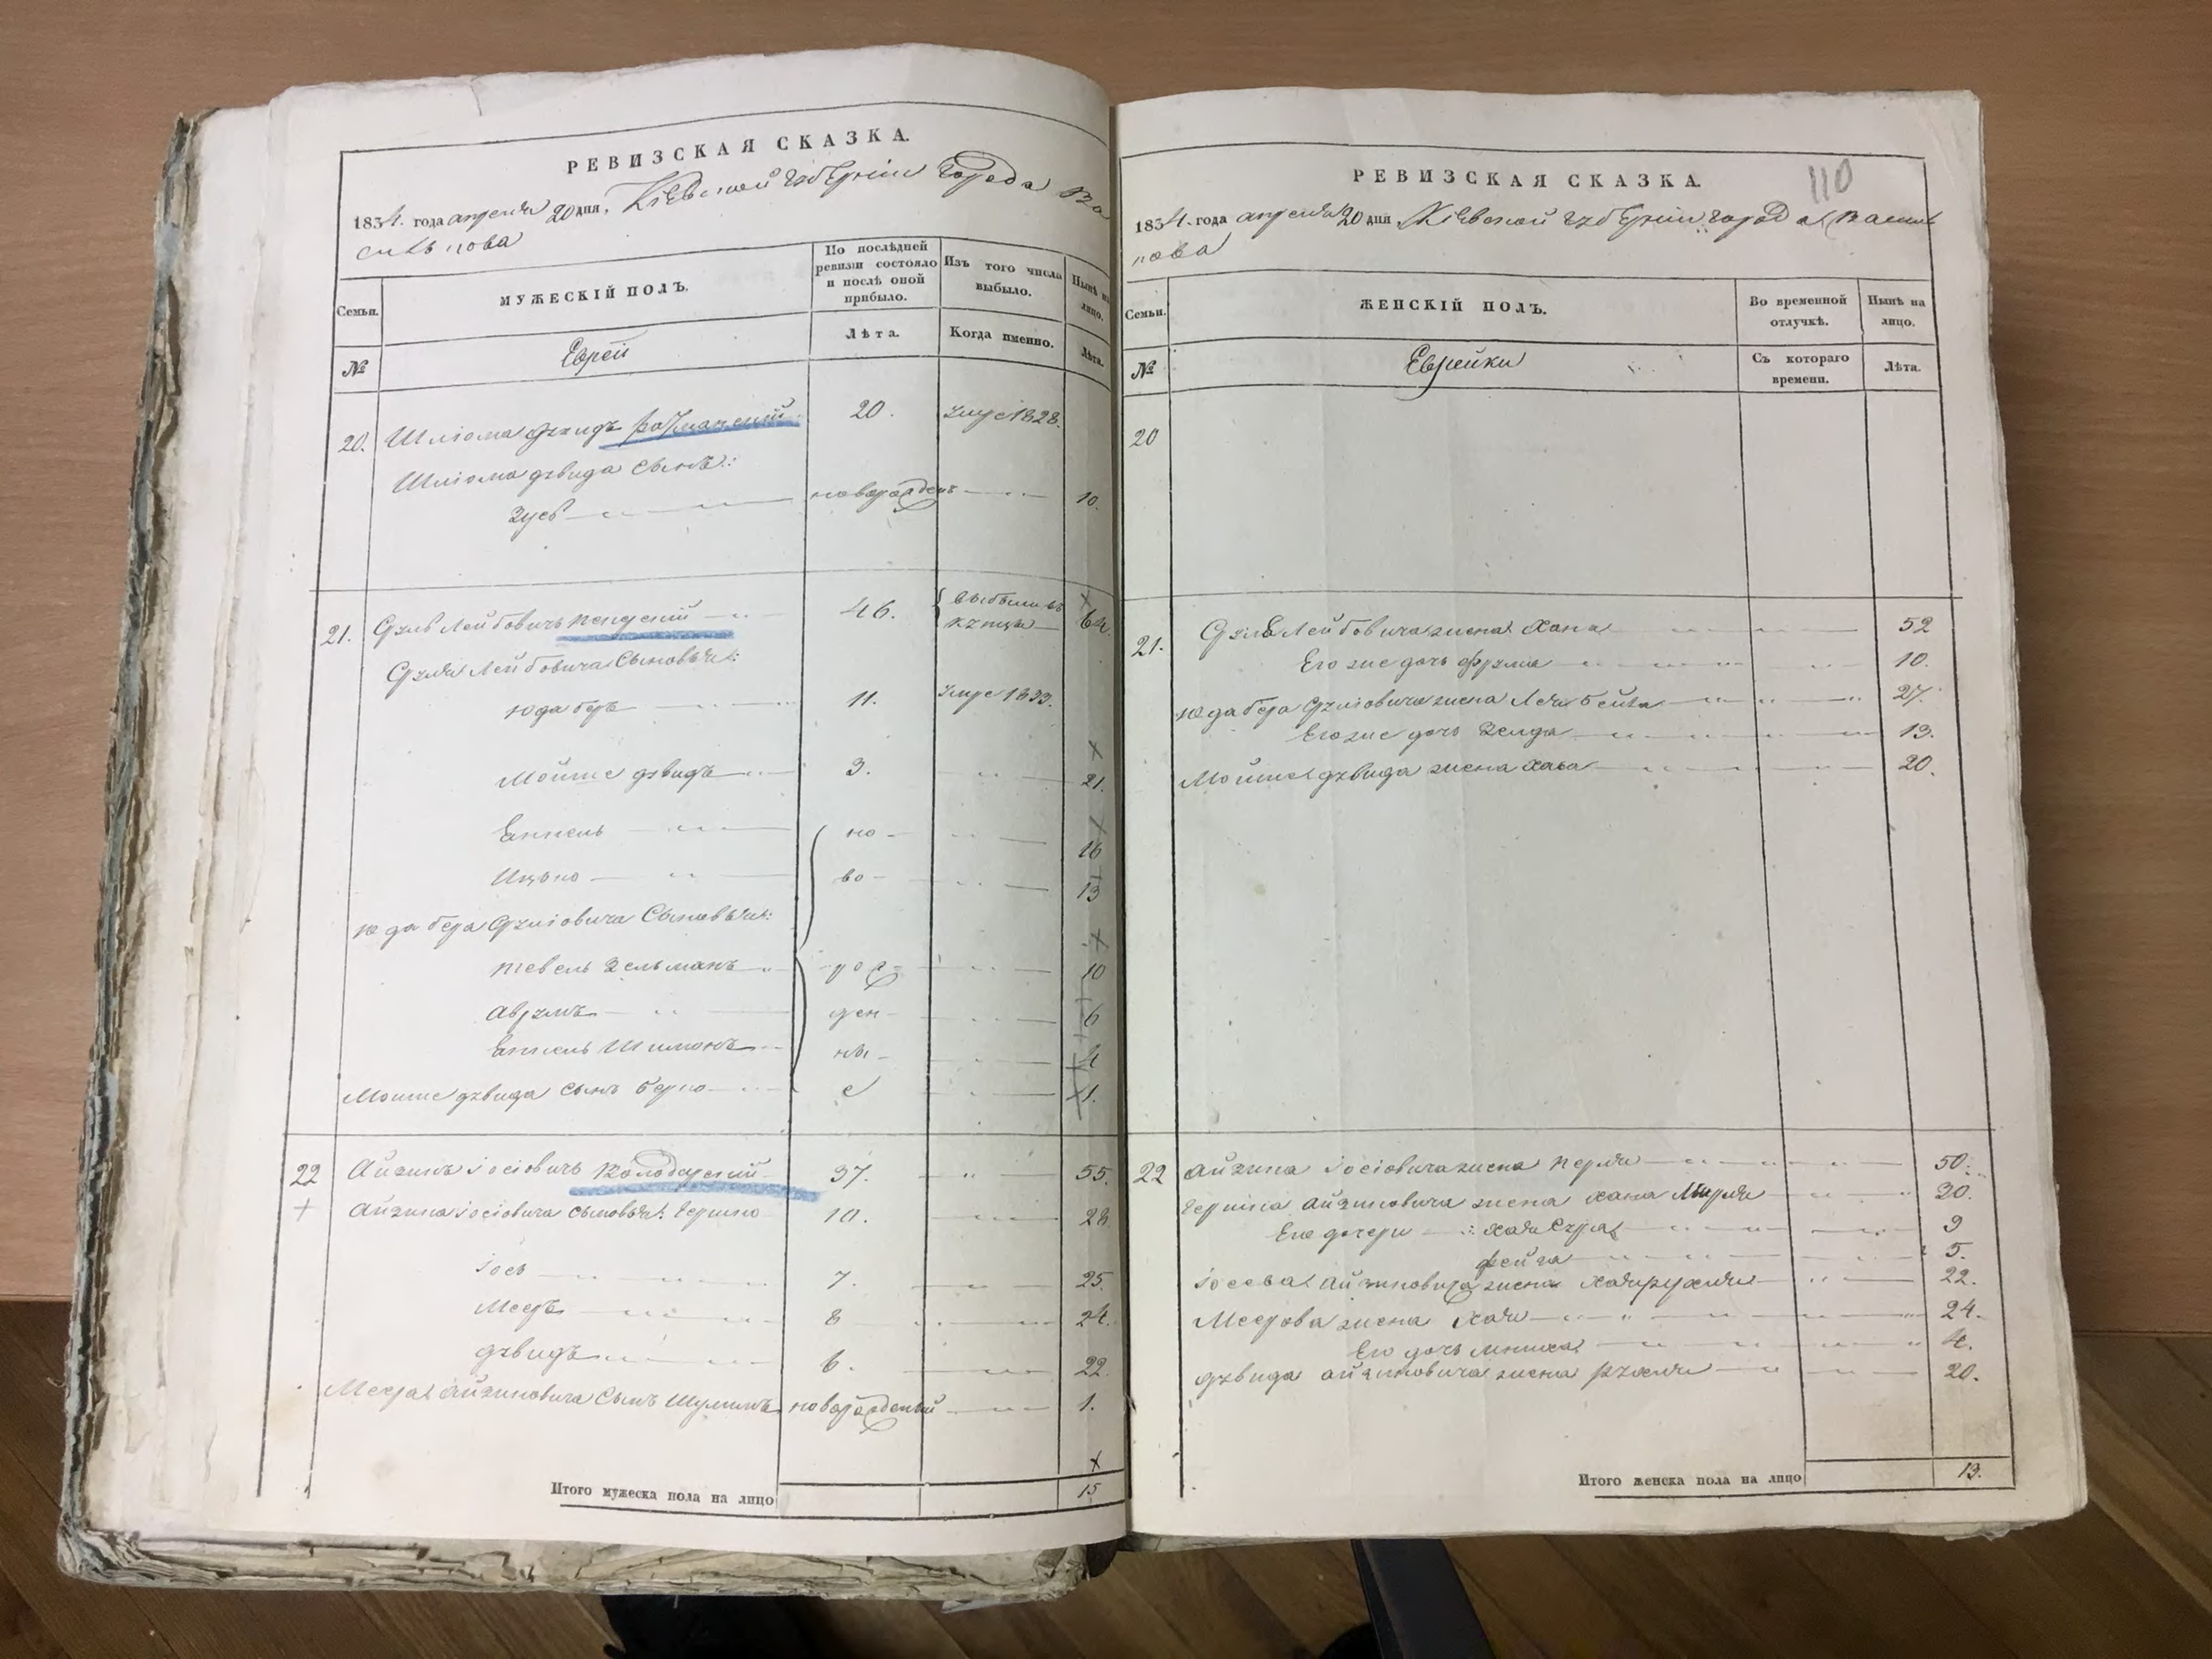 РЕВИЗСКАЯ СКАЗКА.
1834. года апреля 20 дня, Кіевской губерніи города Ва
силькова
Семьи.
МУЖЕСКІЙ ПОЛЪ.
По послѣдней ревизіи состояло и послѣ оной прибыло.
Изъ того числа выбыло.
Нынѣ на лицо.
№
Евреи
Лѣта.
Когда именно.
Лѣта.
20. Шліома Дувидъ 20. умре 1828.
Шліома Дувида сынъ:
Зусь новорожденъ 10.
21. Сруль Лейбовичъ 46. выбыли въ купцы 64.
Сруля Лейбовича сыновья:
Юда Беръ 11. умре 1833.
Мойше Дувидъ 3. 21.
Янкель но- 16
Ицько во- 13
Юда Бера Сруліовича сыновья:
Тевель Зельманъ рож- 10
Аврумъ ден- 6
Янкель Шимонъ ны- 4
Мойше Дувида сынъ Берко е 1.
22 Айзикъ Іосіовичъ Володарский 37. 55.
Айзика Іосіовича сыновья: Гершко 10. 28
Іось 7. 25.
Мееръ 8 24.
Дувидъ 6. 22.
Меера Айзиковича сынъ Шулимъ новорожденый 1.
Итого мужеска пола на лицо 15
110
РЕВИЗСКАЯ СКАЗКА.
1834. года апреля 20 дня, Кіевской губерніи города Василь
кова
Семьи.
ЖЕНСКІЙ ПОЛЪ.
Во временной отлучкѣ.
Нынѣ на лицо.
№
Еврейки
Съ котораго времени.
Лѣта.
20
21. Сруля Лейбовича жена Хана 52
Его же дочь Фрума 10.
Юда Бера Сруліовича жена Лея Бейла 27.
Его же дочь Зелда 13.
Мойше Дувида жена Хава 20.
22 Айзика Іосіовича жена Перля 50.
Гершка Айзиковича жена Хана Мирля 30.
Его дочери: Хая Сура 9
Фейга 5.
Іосева Айзиковича жена 22.
Меерова жена Хая 24.
Его дочь 4.
Дувида Айзиковича жена Рухля 20.
Итого женска пола на лицо 13.